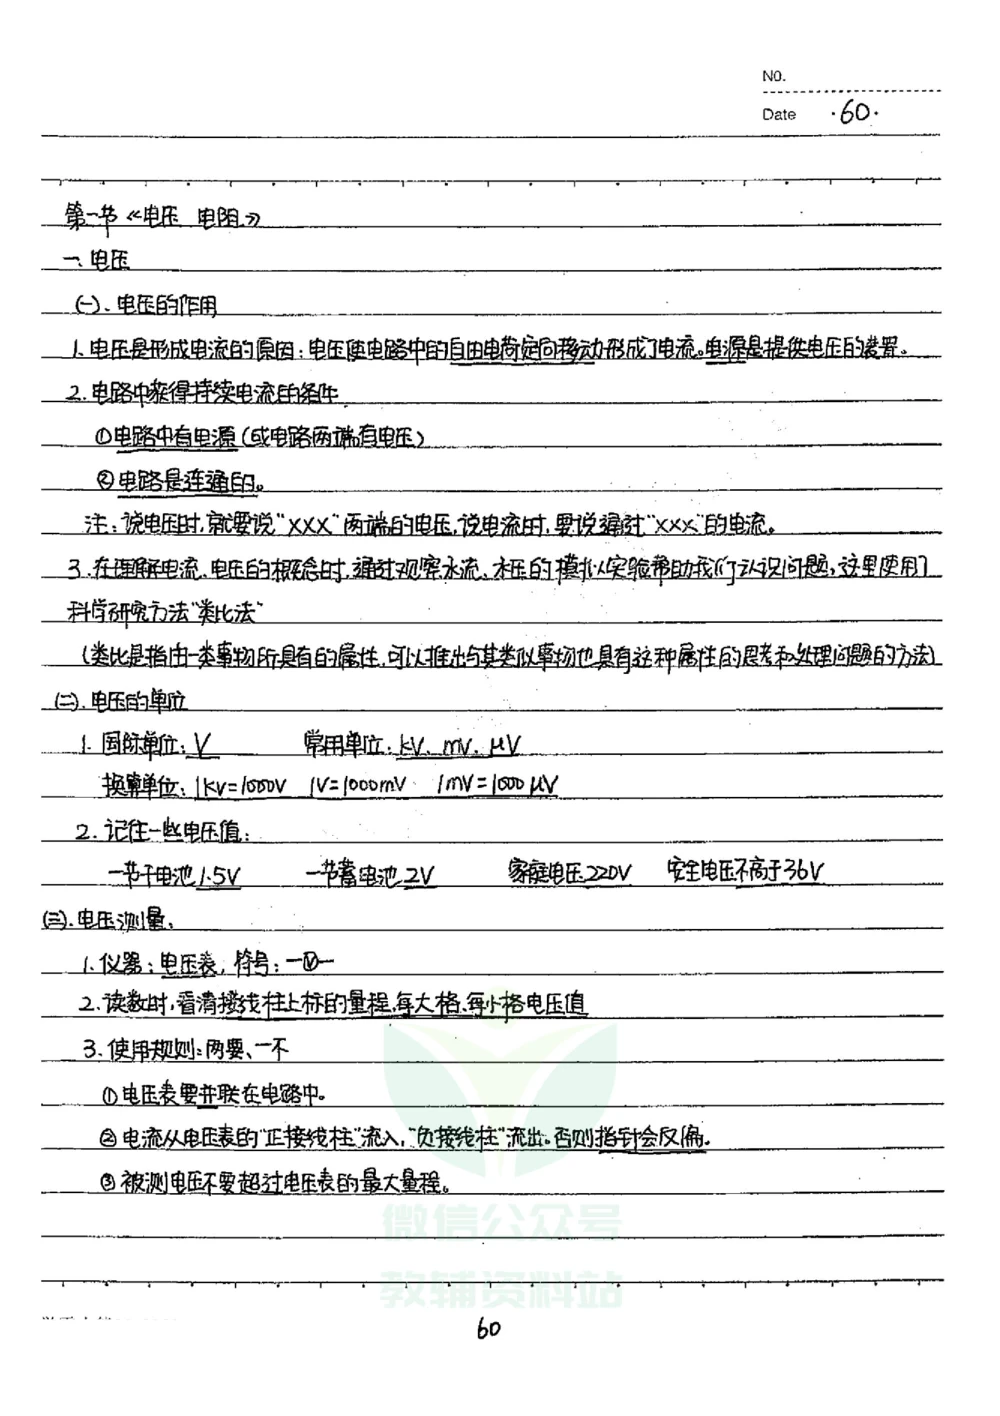 NO.
Date ·60·
第一节《电压 电阻》
一、电压
(一)、电压的作用
1、电压是形成电流的原因：电压使电路中的自由电荷定向移动形成了电流。电源是提供电压的装置。
2、电路中获得持续电流的条件
①电路中有电源(或电路两端有电压)
②电路是连通的。
注：说电压时,就要说"XXX"两端的电压,说电流时,要说通过"XXX"的电流。
3、在理解电流、电压的概念时,通过观察水流、水压的模拟实验帮助我们认识问题,这里使用了
科学研究方法"类比法"
(类比是指由一类事物所具有的属性,可以推出与其类似事物也具有这种属性的思考和处理问题的方法)
(二)、电压的单位
1. 国际单位：V 常用单位：kV、mV、μV
换算单位：1KV=1000V 1V=1000mV 1mV=1000μV
2. 记住一些电压值：
一节干电池1.5V 一节蓄电池2V 家庭电压220V 安全电压不高于36V
(三)、电压测量：
1、仪器：电压表,符号：—Ⓥ—
2、读数时,看清接线柱上标的量程,每大格、每小格电压值
3、使用规则：两要、一不
①电压表要并联在电路中。
②电流从电压表的"正接线柱"流入,"负接线柱"流出。否则指针会反偏。
③被测电压不要超过电压表的最大量程。
微信公众号
教辅资料站
60